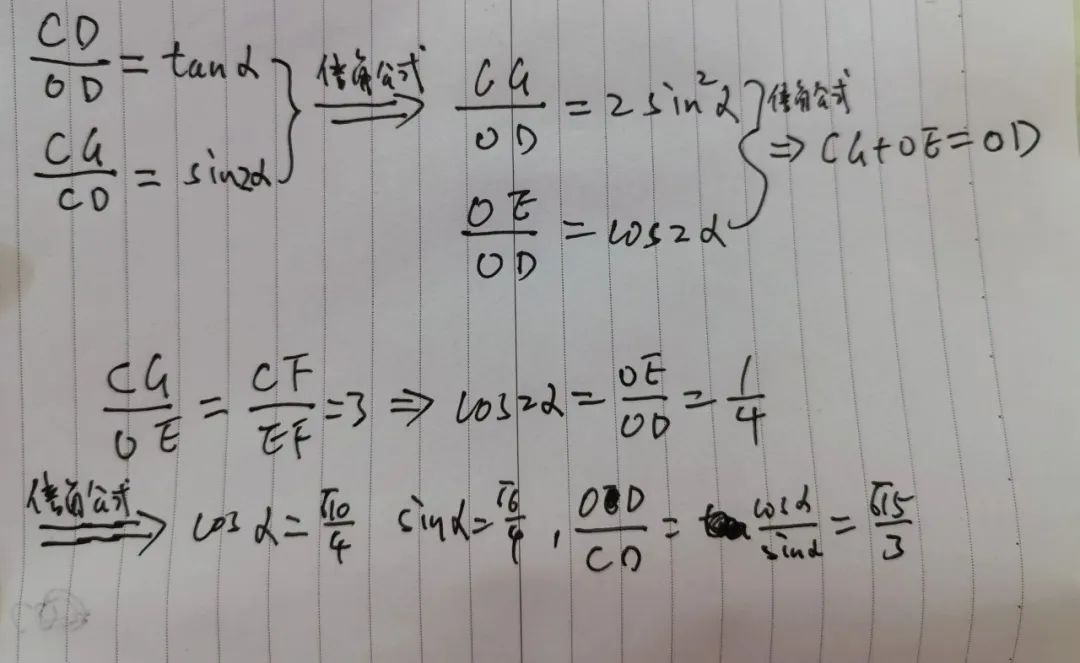 CD/OD = tanα
CG/CD = sin2α
倍角公式 ⟹ CG/OD = 2sin²α
OE/OD = cos2α
倍角公式 ⇒ CG+OE=OD
CG/OE = CF/EF = 3 ⇒ cos2α = OE/OD = 1/4
倍角公式 ⟹ cosα = √10/4 sinα = √6/4 , OD/CD = cosα/sinα = √15/3